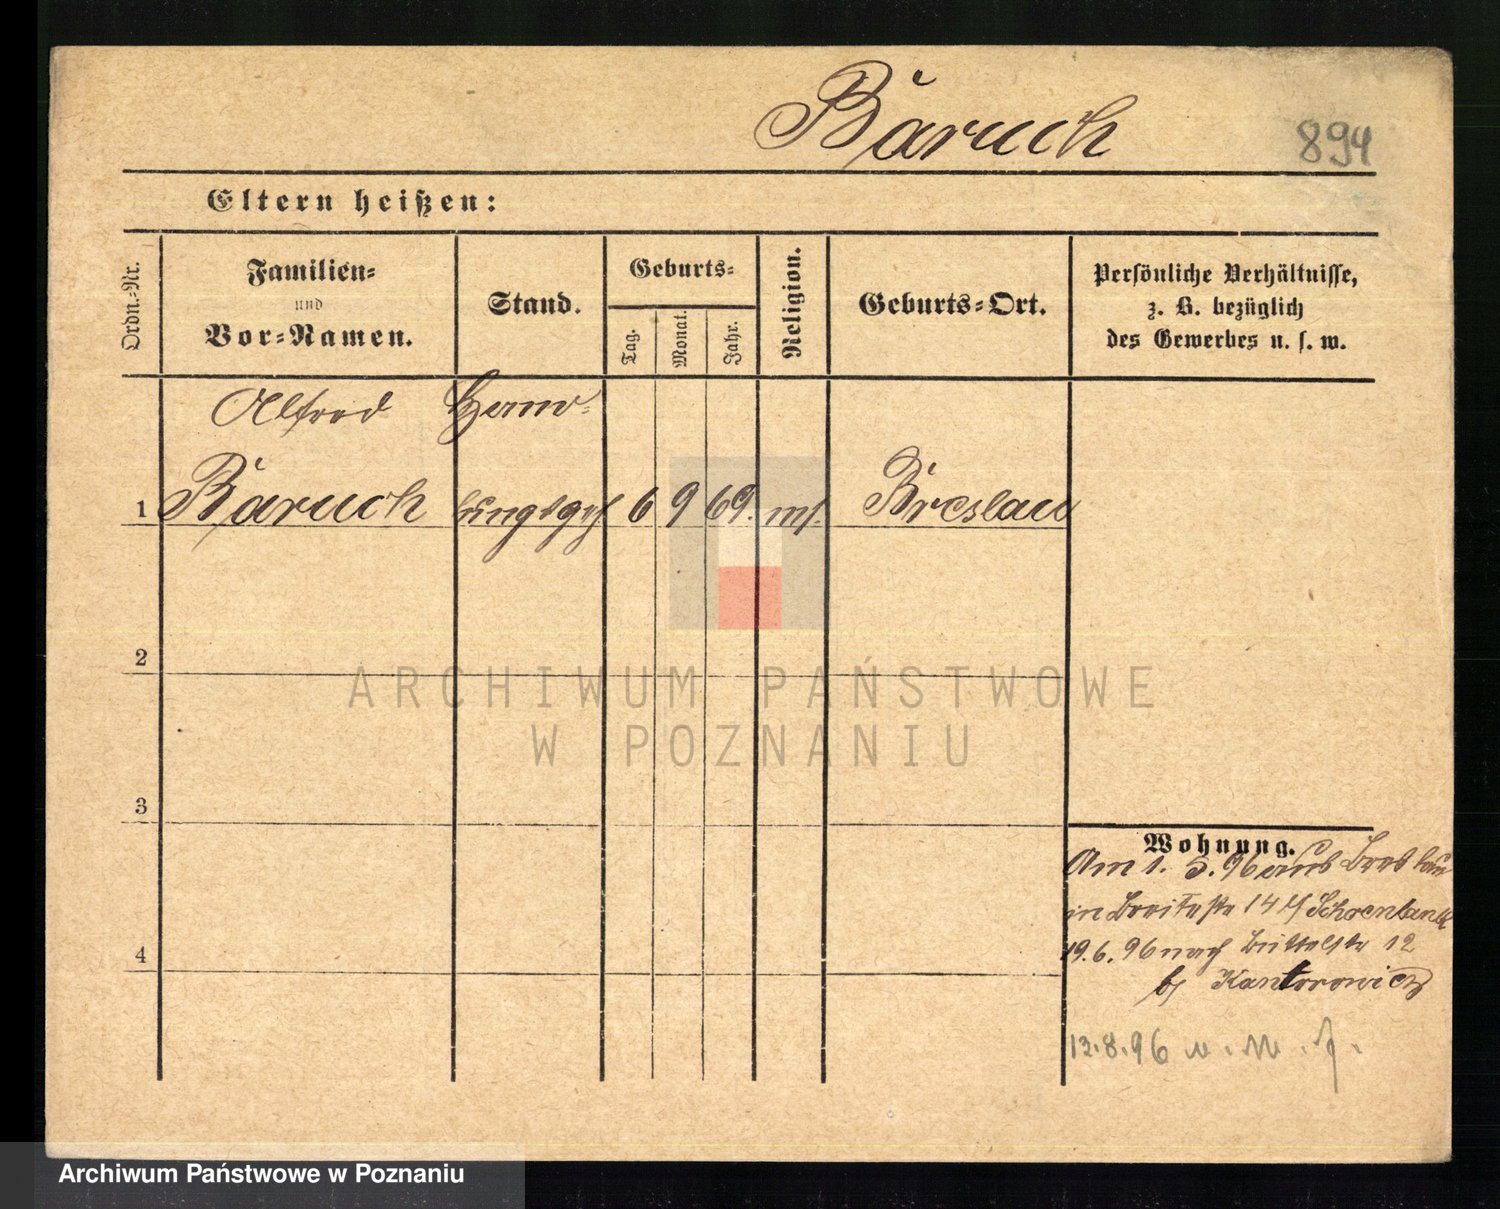 Baruch
894
Eltern heißen:
Ordn.-Nr.
Familien-
und
Vor-Namen.
Stand.
Geburts-
Tag.
Monat.
Jahr.
Religion.
Geburts-Ort.
Persönliche Verhältnisse,
z. B. bezüglich
des Gewerbes u. s. w.
Alfred
1 Baruch
6 9 69. ms. Breslau
2
3
4
Wohnung.
Am 1. 5. 96 aus Breslau
in Breitestr 14 Schoenlank
19.6.96 nach Büttelstr 12
bei Kantorowicz
12.8.96
ARCHIWUM PAŃSTWOWE
W POZNANIU
Archiwum Państwowe w Poznaniu